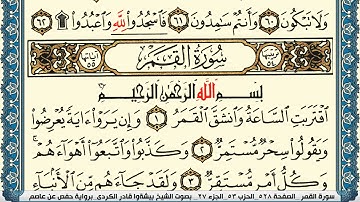 وَلَا تَبْكُونَ ٦٠ وَأَنتُمْ سَٰمِدُونَ ٦١ فَٱسْجُدُوا۟ لِلَّهِ وَٱعْبُدُوا۟ ۩ ٦٢
ترتيبها ٥٤ سُورَةُ ٱلْقَمَرِ آياتها ٥٥
بِسْمِ ٱللَّهِ ٱلرَّحْمَٰنِ ٱلرَّحِيمِ
ٱقْتَرَبَتِ ٱلسَّاعَةُ وَٱنشَقَّ ٱلْقَمَرُ ١ وَإِن يَرَوْا۟ ءَايَةً يُعْرِضُوا۟
وَيَقُولُوا۟ سِحْرٌ مُّسْتَمِرٌّ ٢ وَكَذَّبُوا۟ وَٱتَّبَعُوٓا۟ أَهْوَآءَهُمْ ۚ
وَكُلُّ أَمْرٍ مُّسْتَقِرٌّ ٣ وَلَقَدْ جَآءَهُم مِّنَ ٱلْأَنۢبَآءِ
سورة القمر الصفحة ٥٢٨ الحزب ٥٣ الجزء ٢٧ بصوت الشيخ بيشةوا قادر الكردي. برواية حفص عن عاصم